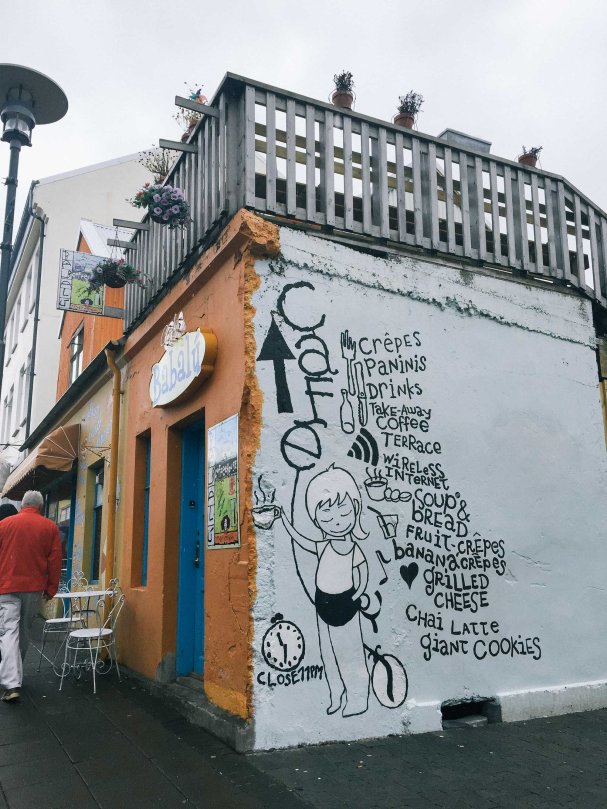 Babalú
Café
CRÊPES
PANINIS
DRINKS
TAKE-AWAY
COFFEE
TERRACE
WIRELESS
INTERNET
SOUP &
BREAD
FRUIT CRÊPES
BANANA CRÊPES
GRILLED
CHEESE
CHAI LATTE
giANT COOKIES
CLOSE 11PM